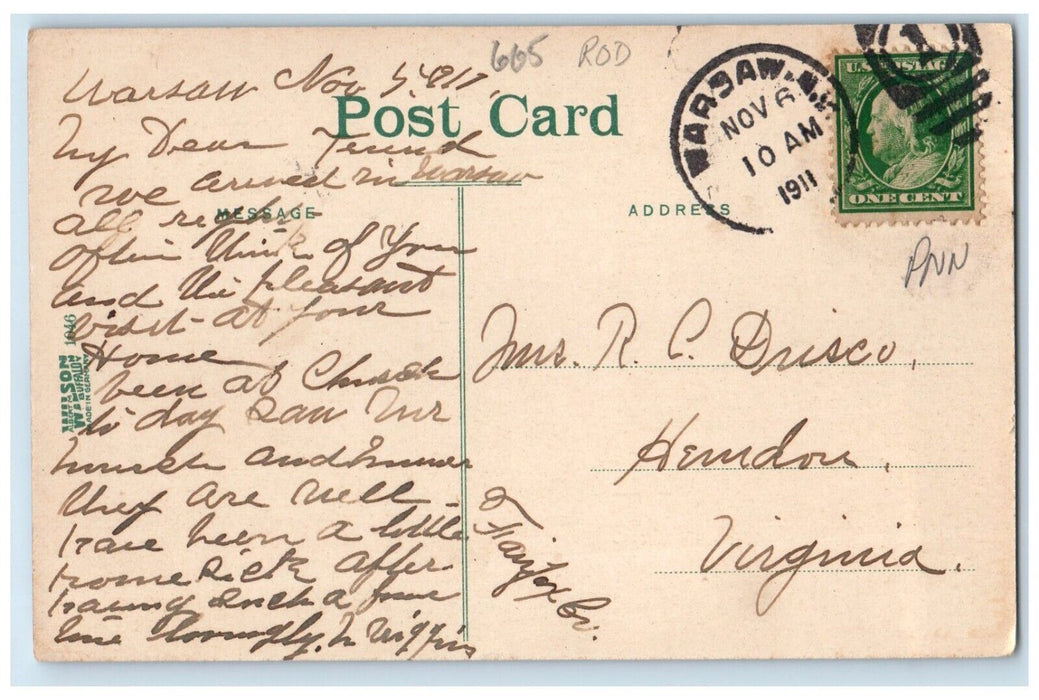 665 ROD
Post Card
MESSAGE
ADDRESS
WARSAW, N.Y.
NOV 6
10 AM
1911
1
U.S. POSTAGE
ONE CENT
PNN
Warsaw Nov 5, 1911.
My Dear Friend
We arrived in Warsaw
all right
often think of you
and the pleasant
visit at your
Home
been at Church
to day saw Mr
and
they are well
have been a little
home sick after
having such a fine
time
Mrs. R. C. Drisco,
Herndon,
Virginia.
Fairfax Co.
1046
WILSON
BUFFALO
MADE IN GERMANY